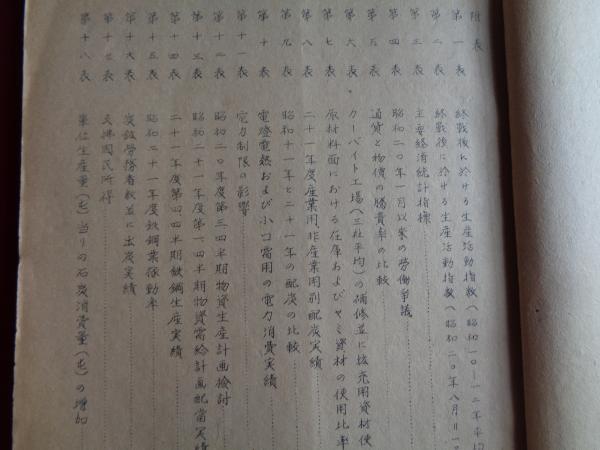 附表
第一表 終戦後に於ける生産活動指数(昭和一〇-一二年平均
第二表 終戦後に於ける生産活動指数(昭和二〇年八月
第三表 主要経済統計指標
第四表 昭和二〇年一月以来の労働争議
第五表 通貨と物価の騰貴率の比較
第六表 カーバイト工場(三社平均)の補修並に拡充用資材使
第七表 原材料面における在庫およびヤミ資材の使用比率
第八表 二十一年度産業用、非産業用別配炭実績
第九表 昭和十一年と二十一年の配炭の比較
第十表 電燈電熱および小口需用の電力消費実績
第十一表 電力制限の影響
第十二表 昭和二〇年度第三四半期物資生産計画検討
第十三表 昭和二十一年度第一四半期物資需給計画配当実績
第十四表 二十一年度第四四半期鉄鋼生産実績
第十五表 昭和二十一年度鉄鋼業稼動率
第十六表 炭鉱労務者数並に出炭実績
第十七表 実質国民所得
第十八表 単位生産量(屯)当りの石炭消費量(屯)の増加